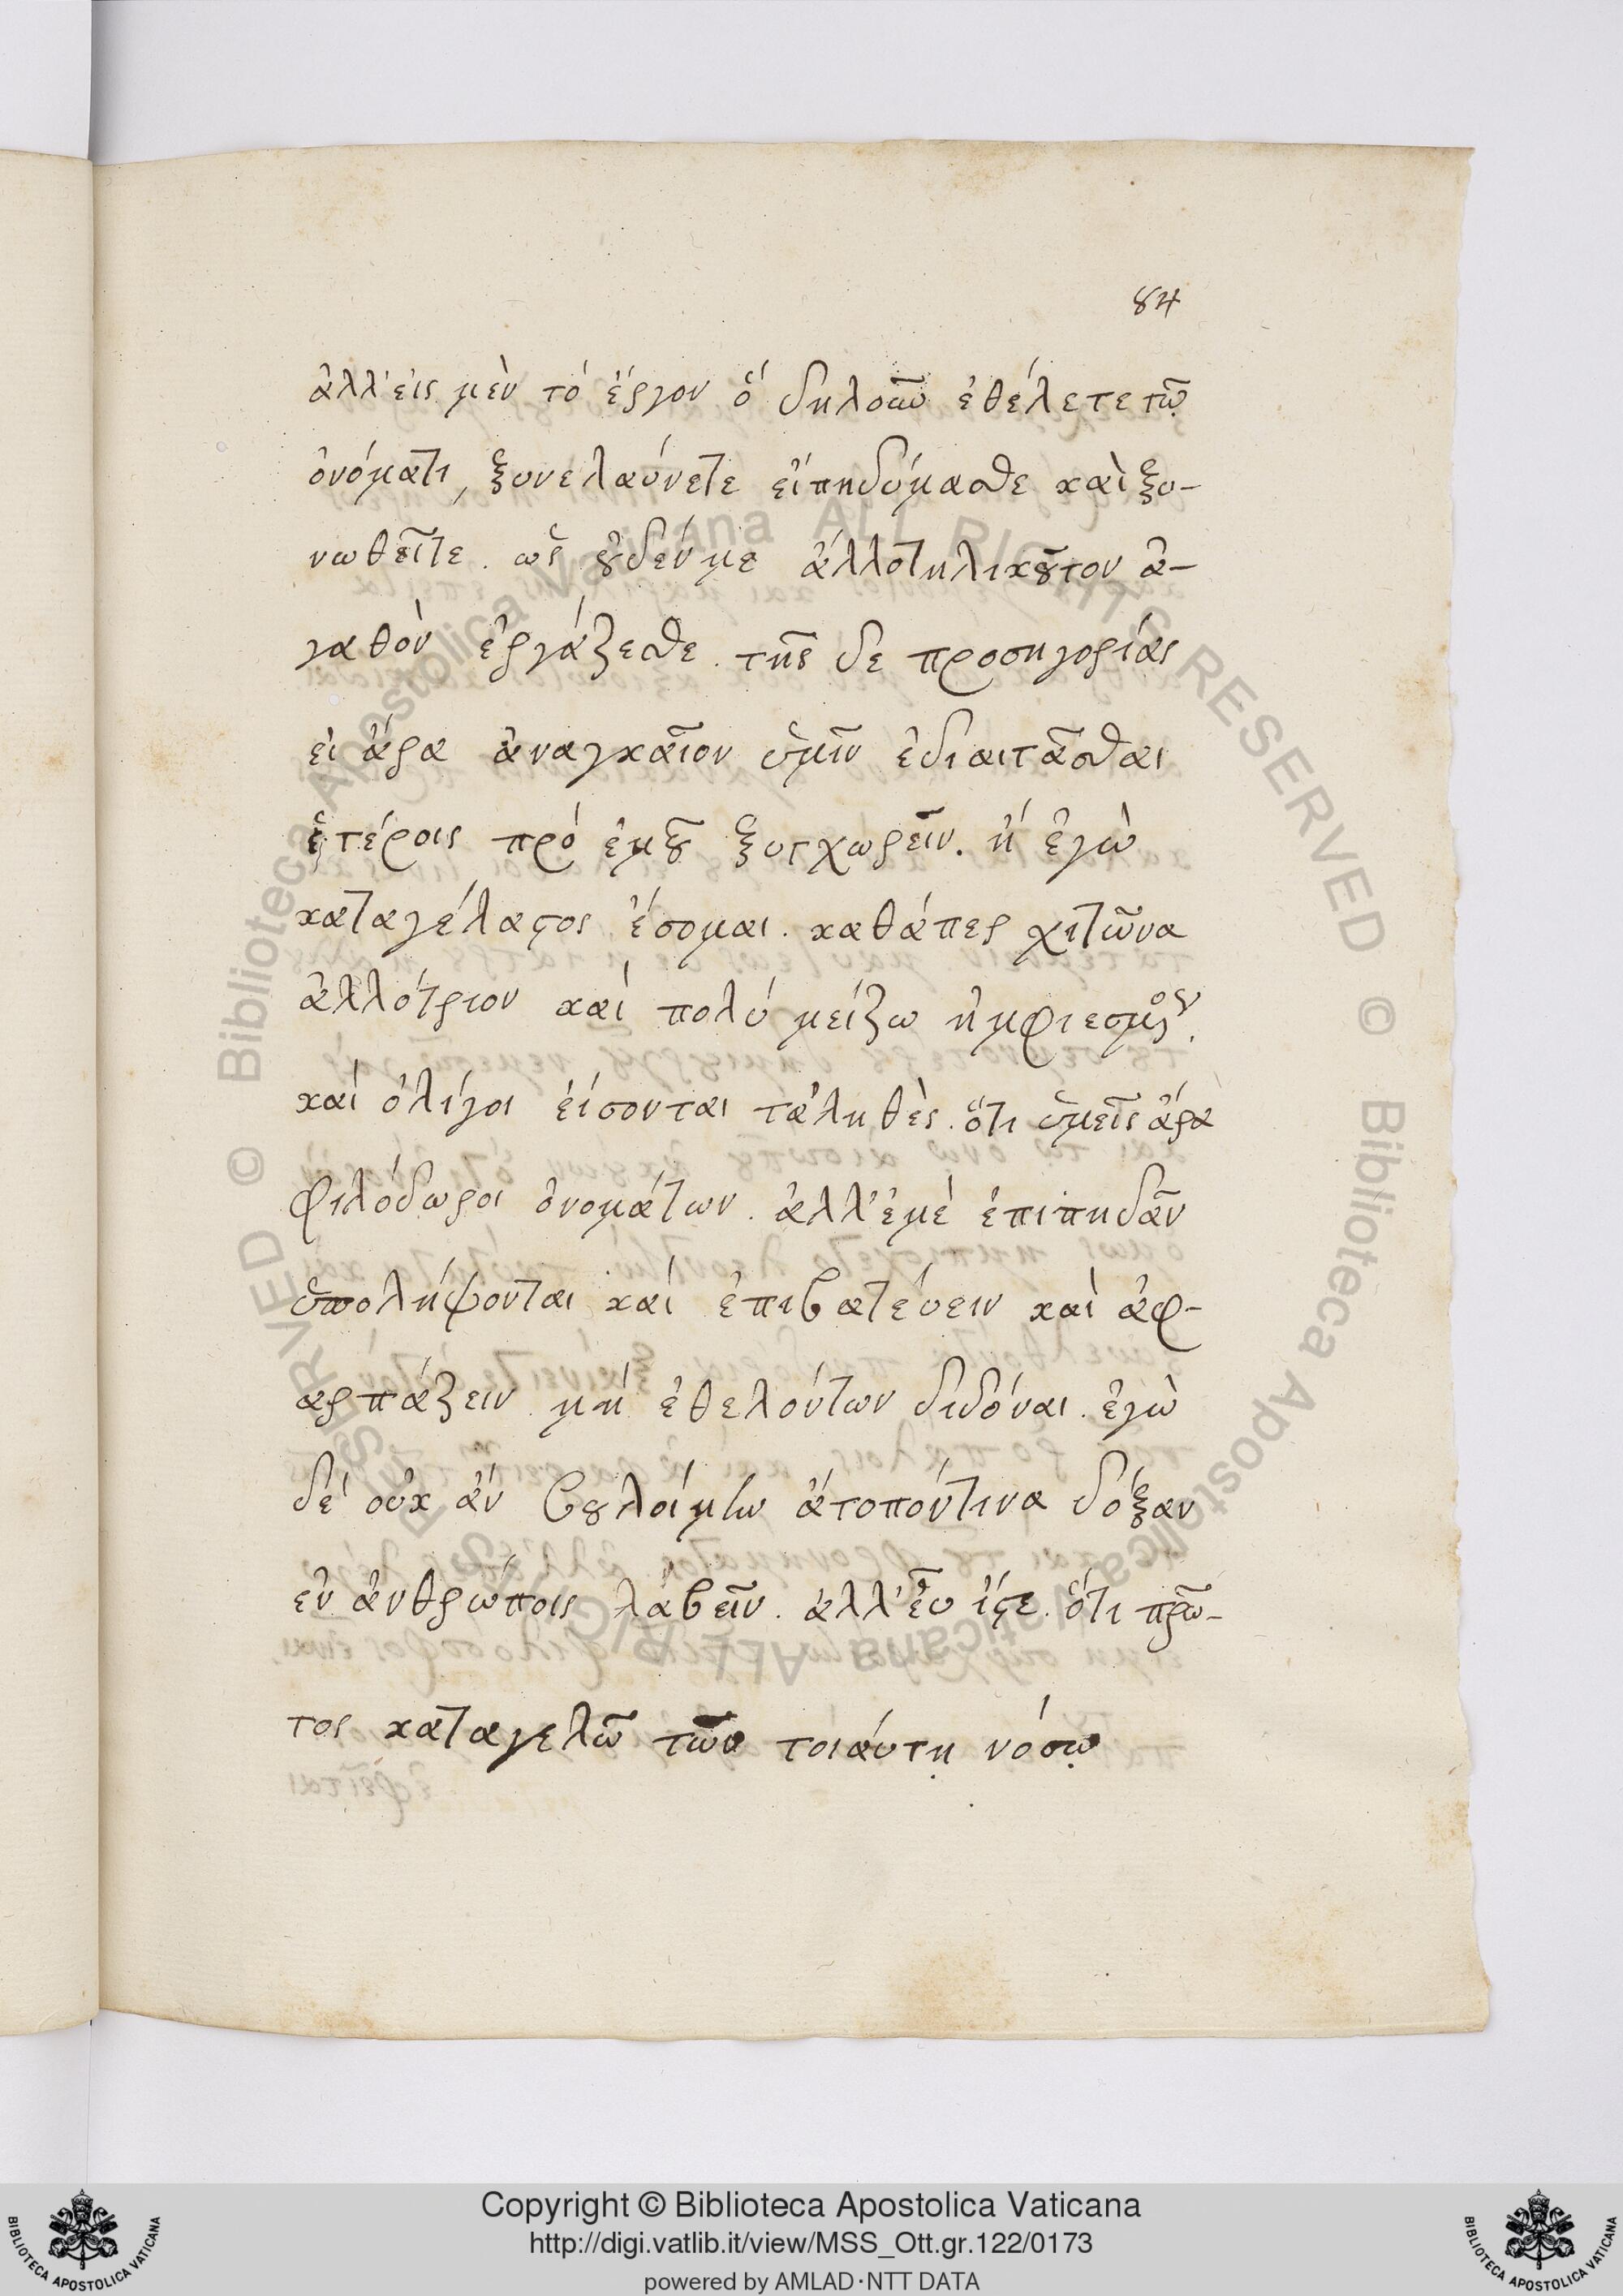 84
ἀλλ' εἰς μὲν τὸ ἔργον ὃ δηλοῦν ἐθέλετε τῷ
ὀνόματι, ξυνελαύνετε εἰπηδύμασθε καὶ ξυ-
νωθεῖτε. ὡς οὐδέν με ἄλλο τηλικοῦτον ἀ-
γαθὸν ἐργάζεσθε. τῆς δε προσηγορίας
εἰ ἄρα ἀναγκαῖον ὑμῖν ἐδιαιτᾶσθαι
ἑτέροις πρὸ ἐμοῦ ξυγχωρεῖν. ἢ ἐγὼ
καταγέλαστος ἔσομαι. καθάπερ χιτῶνα
ἀλλότριον καὶ πολύ μείζω ἠμφιεσμένος.
καὶ ὀλίγοι εἴσονται τἀληθὲς. ὅτι ὑμεῖς ἄρα
φιλόδωροι ὀνομάτων. ἀλλ' ἐμὲ ἐπιπηδᾶν
ὑπολήψονται καὶ ἐπιβατεύειν καὶ ἀφ-
αρπάζειν μὴ ἐθελόντων διδόναι. ἐγὼ
δέ οὐκ ἂν βουλοίμην ἄτοπόν τινα δόξαν
ἐν ἀνθρώποις λαβεῖν. ἀλλ' εὖ ἴστε. ὅτι πρῶ-
τος καταγελῶ τῶν τοιαύτῃ νόσῳ
Copyright © Biblioteca Apostolica Vaticana
http://digi.vatlib.it/view/MSS_Ott.gr.122/0173
powered by AMLAD·NTT DATA
BIBLIOTECA APOSTOLICA VATICANA
BIBLIOTECA APOSTOLICA VATICANA
© Biblioteca Apostolica Vaticana ALL RIGHTS RESERVED
© Biblioteca Apostolica Vaticana ALL RIGHTS RESERVED